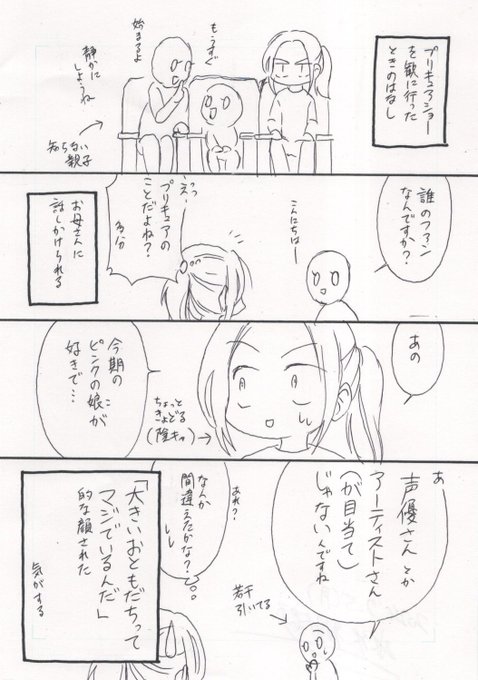 プリキュアショー
を観に行った
ときのはなし
もうすぐ
始まるよ
静かに
しようね
知らない
親子
誰のファン
なんですか?
こんにちはー
えっ、
プリキュアの
ことだよね?
多分
お母さんに
話しかけられる
あの
ちょっと
きょどる
(陰キャ)
今期の
ピンクの娘が
好きで…
あー
声優さんとか
アーティストさん
(が目当て)
じゃないんですね
あれ?
なんか
間違えたかな?
若干
引いてる
「大きいおともだちって
マジでいるんだ」
的な顔された
気がする